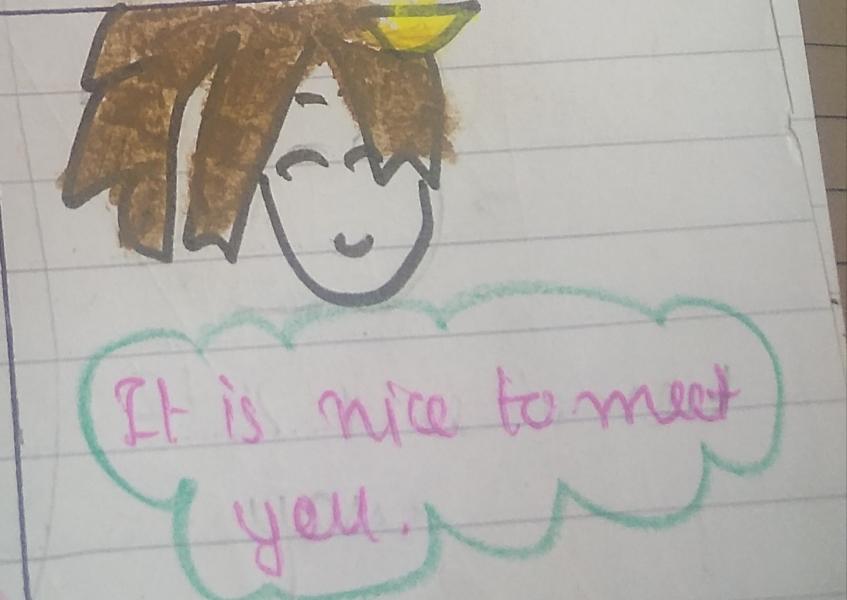 It is nice to meet
you.